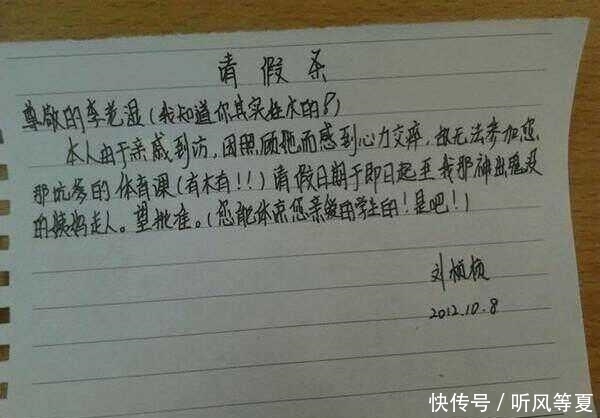 请假条
尊敬的李老湿(我知道你其实姓木的?)
本人由于亲戚到访,因照顾她而感到心力交瘁,故无法参加您
那坑爹的体育课(有木有!!)请假日期于即日起至我那神出鬼没
的姨妈走人。望批准。(您能体谅您亲爱的学生的!是吧!)
刘
2012.10.8
快传号/听风等夏